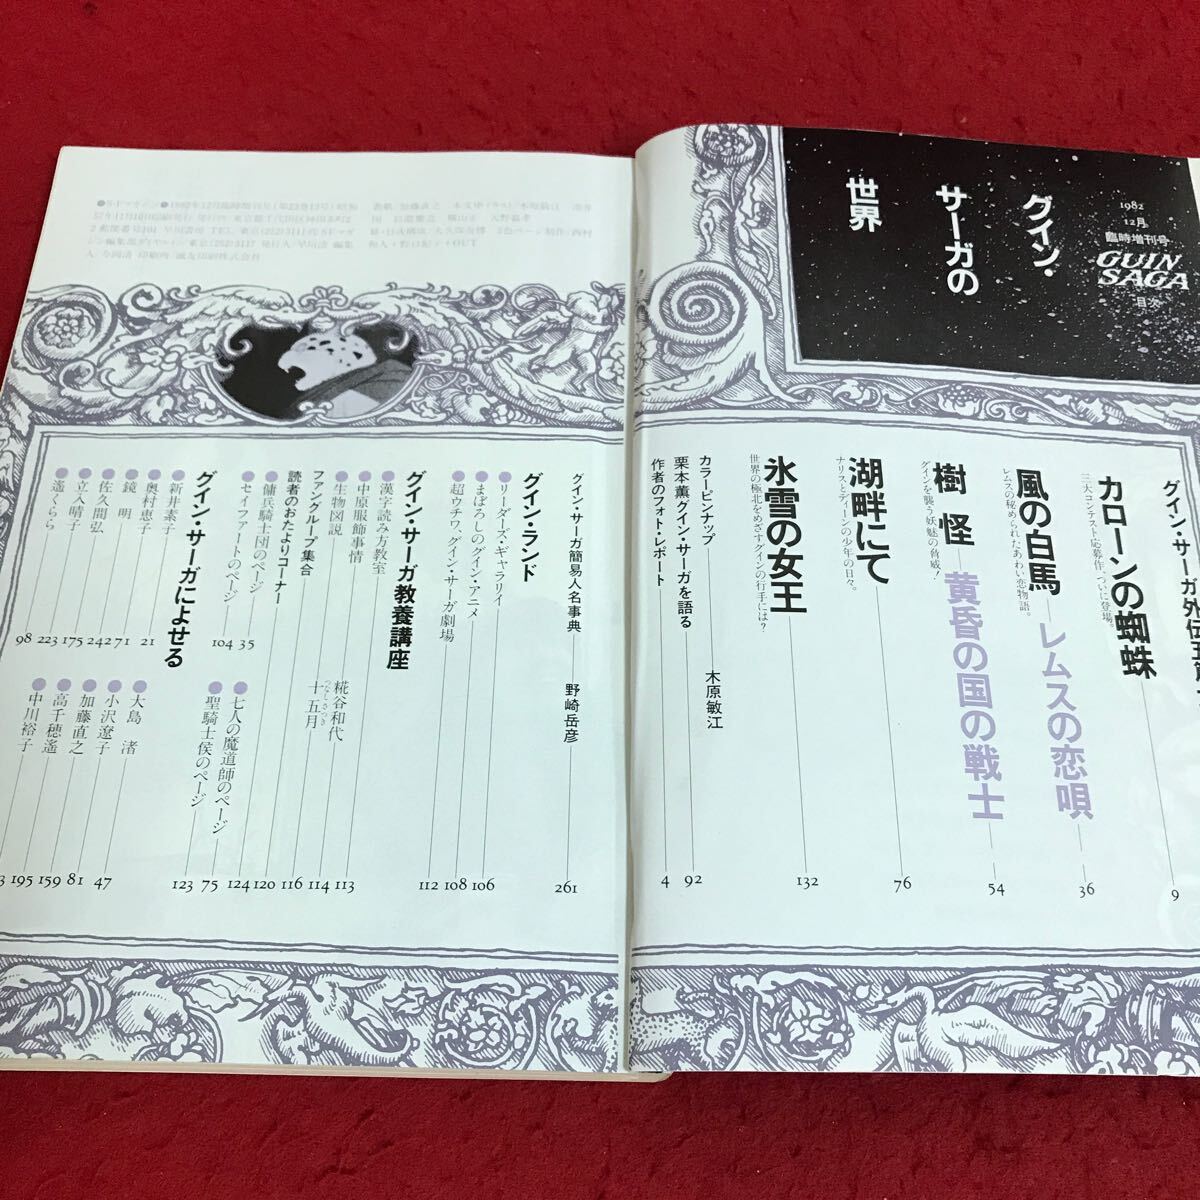 1982
12月
臨時増刊号
GUIN
SAGA
目次
グイン・
サーガの
世界
グイン・サーガ外伝五
9
カローンの蜘蛛
三大コンテスト応募作、ついに登場。
風の白馬―レムスの恋唄
36
レムスの秘められたあわい恋物語。
樹怪 黄昏の国の戦士
54
グインを襲う妖魅の脅威！
湖畔にて
76
ナリスとディーンの少年の日々。
氷雪の女王
132
世界の極北をめざすグインの行手には？
カラーピンナップ 木原敏江
栗本薫グイン・サーガを語る
92
作者のフォト・レポート
4
グイン・サーガ簡易人名事典 野崎岳彦
261
グイン・ランド
●リーダーズ・ギャラリイ
106
●まぼろしのグイン・アニメ
108
●超ウチワ、グイン・サーガ劇場
112
グイン・サーガ教養講座
●漢字読み方教室
●中原服飾事情 糀谷和代
113
●生物図説 十五月
つなしさつき
114
ファングループ集合
116
読者のおたよりコーナー
120
●傭兵騎士団のページ
35
●セイファートのページ
104
●七人の魔道師のページ
124
●聖騎士侯のページ
75
グイン・サーガによせる
123
●新井素子
●奥村恵子
21
●鏡 明
71
●佐久間弘
242
●立入晴子
175
●遥くらら
223
98
●大島 渚
●小沢遼子
47
●加藤直之
81
●高千穂遙
159
●中川裕子
195